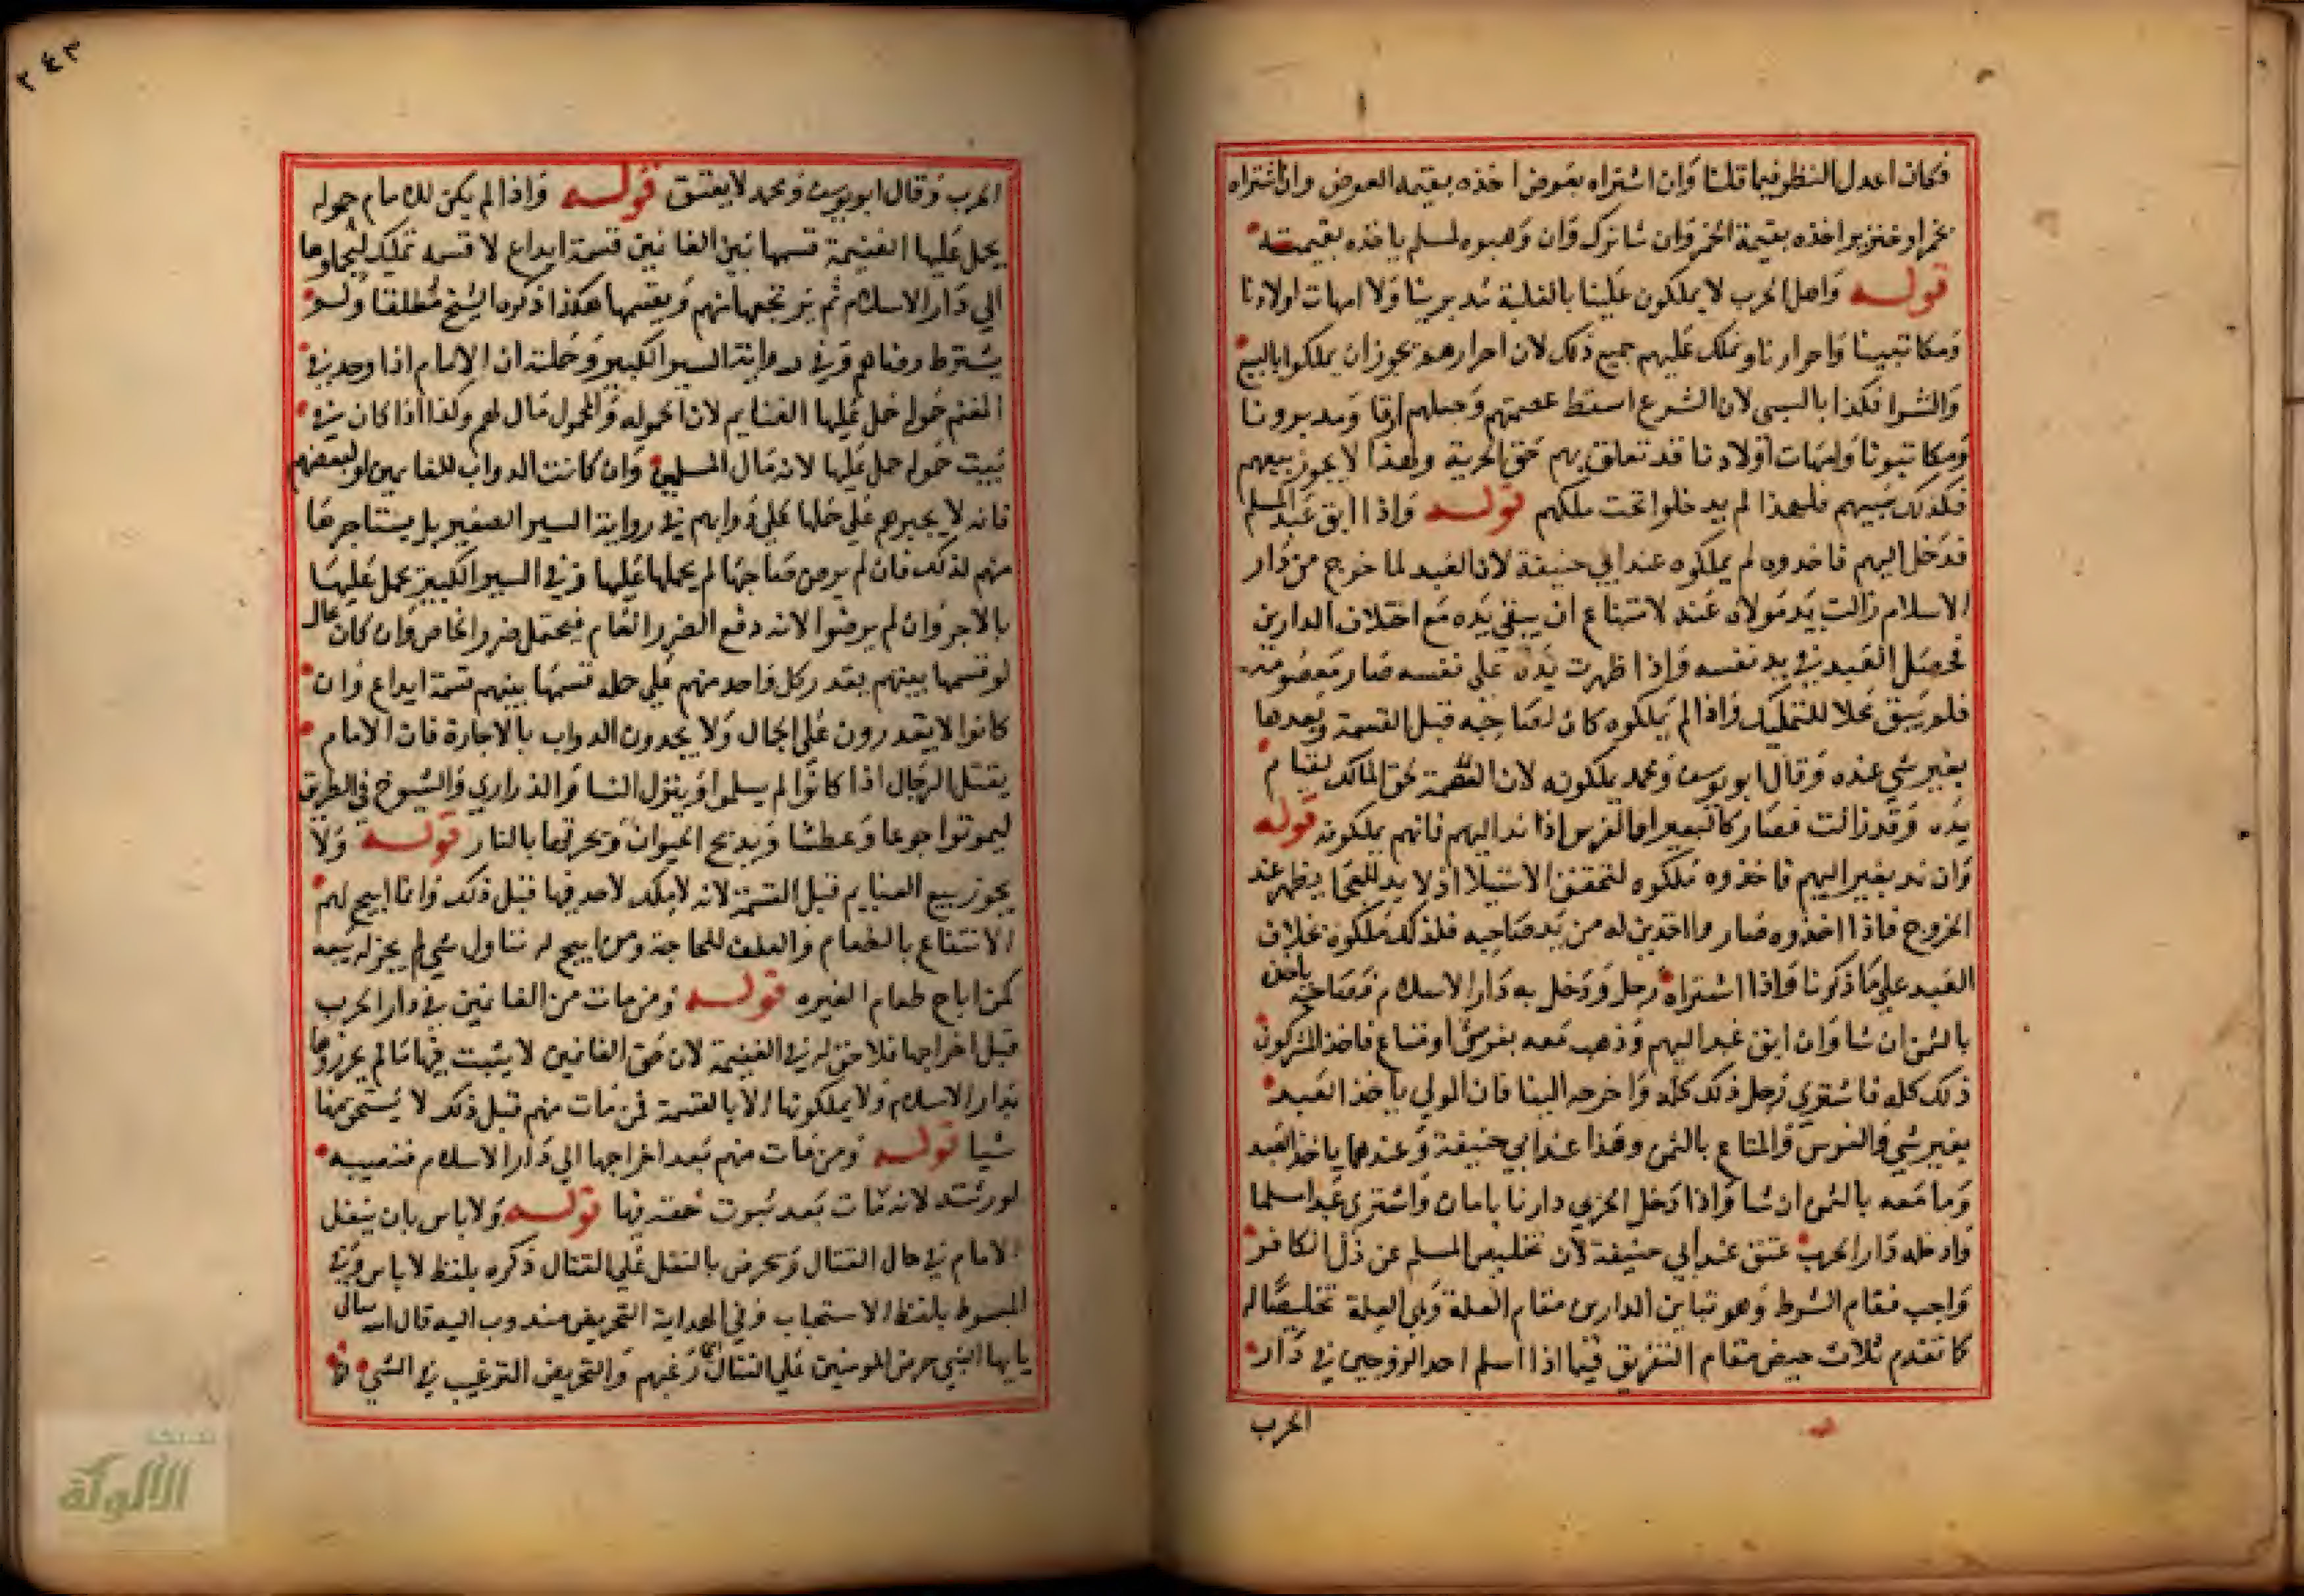 فكان اعدل النظر فيما قلنا وان اشتراه بعوض اخذه بقيمة العوض وان اشتراه
بخمر او خنزير اخذه بقيمة الخمر وان شا ترك وان وهبوه لمسلم ياخذه بقيمته
قوله واهل الحرب لا يملكون علينا بالغلبة مدبرينا ولا امهات اولادنا
ومكاتبينا واحرارنا ونملك عليهم جميع ذلك لان احرارهم يجوز ان يملكوا بالبيع
والشرا فكذا بالسبي لان الشرع اسقط عصمتهم وجعلهم ارقا ومدبرونا
ومكاتبونا وامهات اولادنا قد تعلق بهم حق الحرية ولهذا لا يجوز بيعهم
فكذلك سبيهم فلهذا لم يدخلوا تحت ملكهم قوله واذا ابق عبد المسلم
فدخل اليهم فاخذوه لم يملكوه عند ابي حنيفة لان العبد لما خرج من دار
الاسلام زالت يد مولاه عنه لامتناع ان يبقى يده مع اختلاف الدارين
فحصل العبد في يد نفسه واذا ظهرت يده على نفسه صار معصوما منه
فلم يبق محلا للتمليك واذا لم يملكوه كان لصاحبه قبل القسمة وبعدها
بغير شي عنده وقال ابو يوسف ومحمد يملكونه لان العصمة لحق المالك لقيام
يده وقد زالت فصار كالبعير او الفرس اذا ند اليهم فانهم يملكونه قوله
وان ند بعير اليهم فاخذوه ملكوه لتحقق الاستيلا اذ لا يد للعجما يظهر عند
الخروج فاذا اخذوه صار والاخذين له من يد صاحبه فلذلك ملكوه بخلاف
العبد على ما ذكرنا واذا اشتراه رجل ودخل به دار الاسلام فصاحبه ياخذه
بالثمن ان شا وان ابق عبد اليهم وذهب معه بفرس او متاع فاخذ المشركون
ذلك كله فاشترى رجل ذلك كله واخرجه الينا فان المولي ياخذ العبد
بغير شي والفرس والمتاع بالثمن وهذا عند ابي حنيفة وعندهما ياخذ العبد
وما معه بالثمن ان شا واذا دخل الحربي دارنا بامان واشترى عبدا مسلما
وادخله دار الحرب عتق عند ابي حنيفة لان تخليص المسلم عن ذل الكافر
واجب فيقام الشرط وهو تباين الدارين مقام العلة وهي العلة تخليصا له
كما تقدم ثلاث حيض مقام التفريق فيما اذا اسلم احد الزوجين في دار
الحرب
٢٤٣
الحرب وقال ابو يوسف ومحمد لا يعتق قوله واذا لم يكن للامام حمولة
يحمل عليها الغنيمة قسمها بين الغانمين قسمة ايداع لا قسمة تمليك ليحملوها
الي دار الاسلام ثم يرتجعها منهم ويقسمها هكذا ذكره الشيخ مطلقا ولم
يشترط رضاهم وفي رواية السير الكبير وجملته ان الامام اذا وجد في
المغنم حمولة حمل عليها الغنايم لان الحمولة والمحمول مال لهم وكذا اذا كان في
بيت حمولة حمل عليها لانه مال المسلمين وان كانت الدواب للغانمين او لبعضهم
فانه لا يجبرهم علي حملها علي دوابهم في رواية السير الصغير بل يستاجرها
منهم لذلك فان لم يرض صاحبها لم يحملها عليها وفي السير الكبير يحمل عليها
بالاجر وان لم يرضوا لانه دفع الضرر العام فيحتمل ضرر الخاص وان كان بحال
لو قسمها بينهم يقدر كل واحد منهم علي حمله قسمها بينهم قسمة ايداع وان
كانوا لا يقدرون على الحمال ولا يجدون الدواب بالاجارة فان الامام
يقتل الرجال اذا كانوا لم يسلموا وينزل النسا والذراري والشيوخ في الطريق
ليموتوا جوعا وعطشا ويذبح الحيوان ويحرقها بالنار قوله ولا
يجوز بيع الغنايم قبل القسمة لانه لا ملك لاحد فيها قبل ذلك وانما ابيح لهم
الانتفاع بالطعام والعلف للحاجة ومن ابيح له تناول شي لم يجز له بيعه
كمن اباح طعام الغيره قوله ومن مات من الغانمين في دار الحرب
قبل اخراجها فلا حق له في الغنيمة لان حق الغانمين لا يثبت فيها ما لم يحرزوها
بدار الاسلام ولا يملكونها الا بالقسمة فمن مات منهم قبل ذلك لا يستحق منها
شيا قوله ومن مات منهم بعد اخراجها الي دار الاسلام فنصيبه
لورثته لانه مات بعد ثبوت حقه فيها قوله ولا باس بان ينفل
الامام في حال القتال ويحرض بالنفل على القتال ذكره بلفظ لا باس وفي
المبسوط بلفظ الاستحباب وفي الهداية التحريض مندوب اليه قال الله تعالى
يا يها النبي حرض المومنين علي القتال اي رغبهم والتحريض الترغيب في الشي